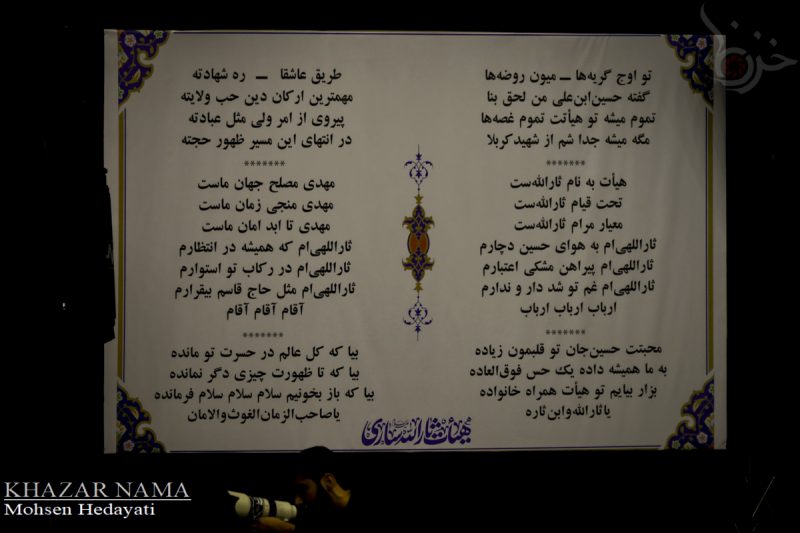 تو اوج گریه‌ها ــ میون روضه‌ها
گفته حسین‌ابن‌علی من لحق بنا
تموم میشه تو هیأتت تموم غصه‌ها
مگه میشه جدا شم از شهیدکربلا
*******
هیأت به نام ثارالله‌ست
تحت قیام ثارالله‌ست
معیار مرام ثارالله‌ست
ثاراللهی‌ام به هوای حسین دچارم
ثاراللهی‌ام پیراهن مشکی اعتبارم
ثاراللهی‌ام غم تو شد دار و ندارم
ارباب ارباب ارباب
*******
محبتت حسین‌جان تو قلبمون زیاده
به ما همیشه داده یک حس فوق‌العاده
بزار بیایم تو هیأت همراه خانواده
یاثارالله وابن ثاره
طریق عاشقا ــ ره شهادته
مهمترین ارکان دین حب ولایته
پیروی از امر ولی مثل عبادته
در انتهای این مسیر ظهور حجته
*******
مهدی مصلح جهان ماست
مهدی منجی زمان ماست
مهدی تا ابد امان ماست
ثاراللهی‌ام که همیشه در انتظارم
ثاراللهی‌ام در رکاب تو استوارم
ثاراللهی‌ام مثل حاج قاسم بیقرارم
آقام آقام آقام
*******
بیا که کل عالم در حسرت تو مانده
بیا که تا ظهورت چیزی دگر نمانده
بیا که باز بخونیم سلام سلام سلام فرمانده
یاصاحب‌الزمان‌الغوث‌والامان
هیئت ثارالله ساری
خزرنما
KHAZAR NAMA
Mohsen Hedayati